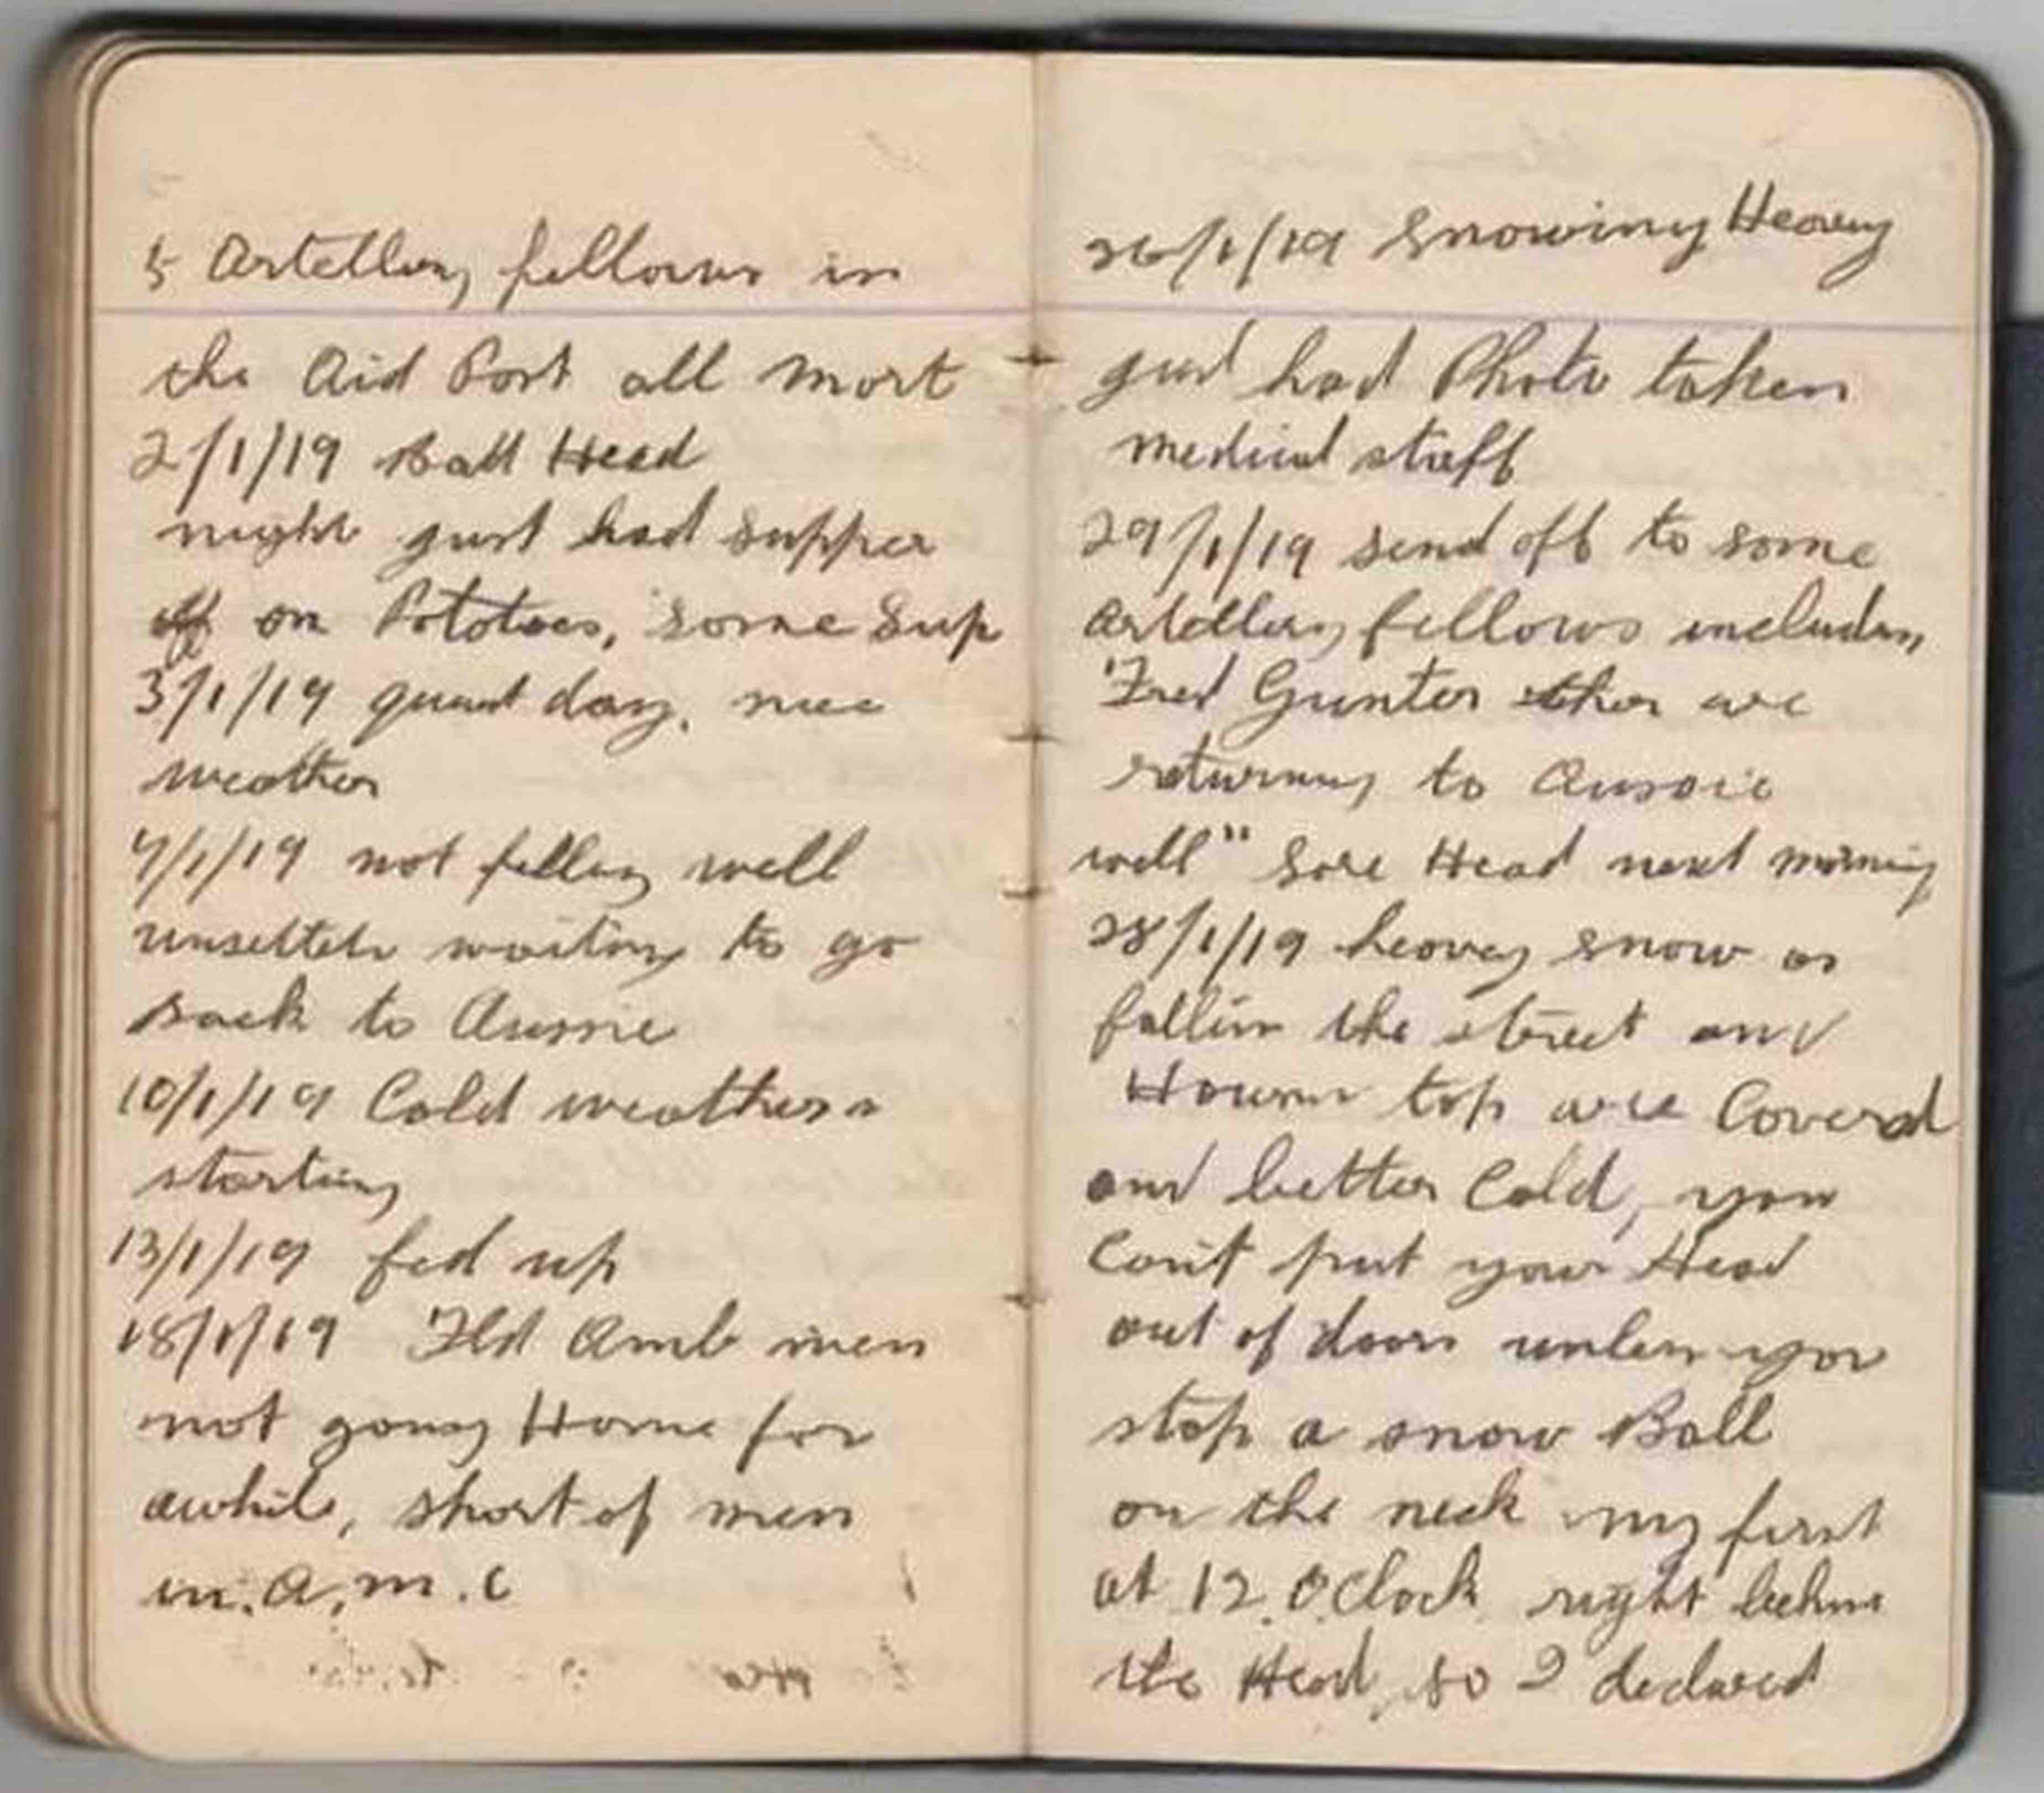 5 Artellery fellows in
the Aid Post all mort
2/1/19 Ball Head
night just had supper
off on Pototoes, some Sup
3/1/19 quiet day, nice
weather
7/1/19 not felling well
unsetteh waiting to go
back to Aussie
10/1/19 Cold weather
starting
13/1/19 fed up
18/1/19 Fld Amb men
not going Home for
awhile, short of men
in. A.M.C
26/1/19 Snowing Heavey
just had Photo taken
medical staff
29/1/19 send off to some
Artellery fellows including
Fred Gunter thar are
returning to Aussie
well" Sore Head next morning
28/1/19 heavey snow as
fallin the street and
Houses top are Coverd
and better Cold, you
Can't put your Head
out of doors unless you
stop a snow Ball
on the neck my first
at 12.O.Clock right behind
the Head, so I declared